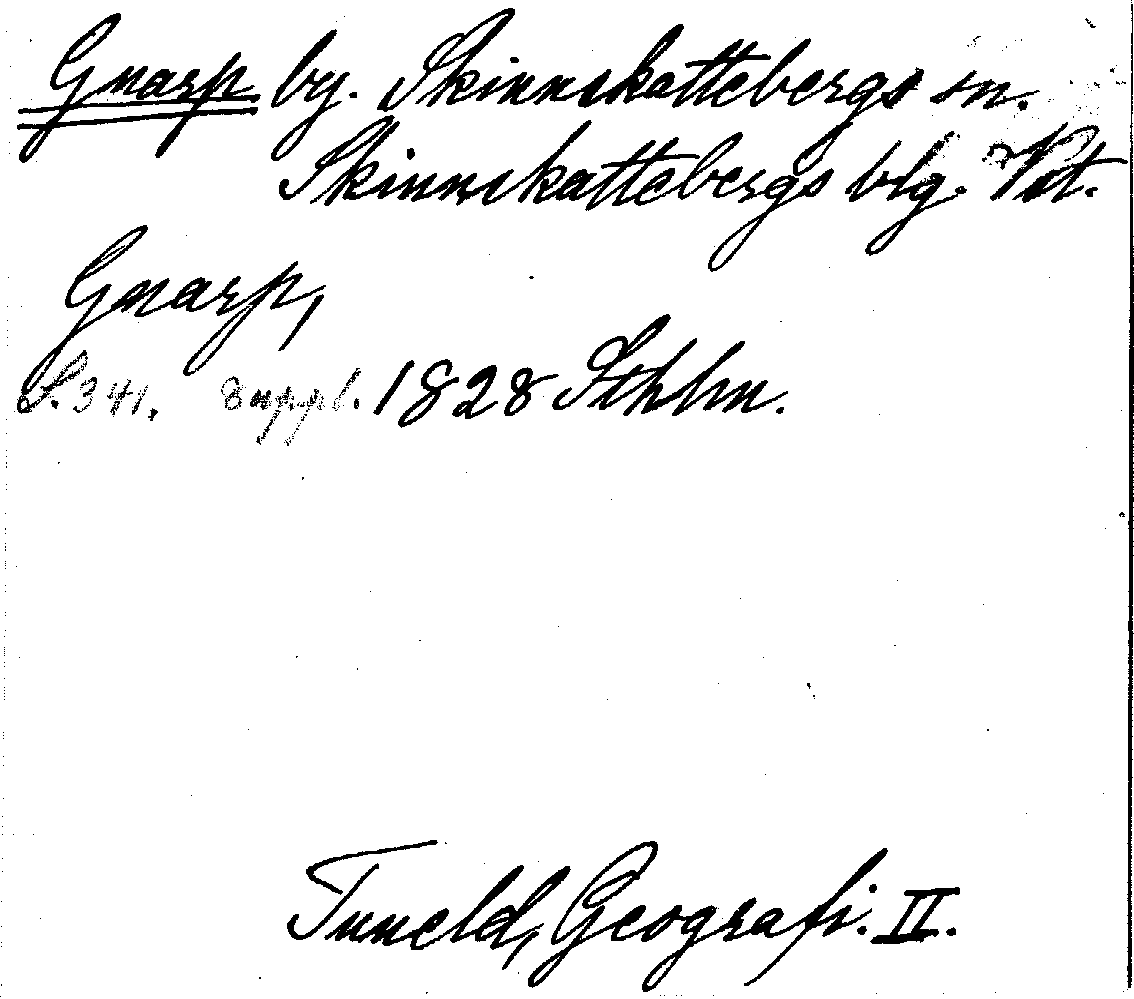 Gnarp by. Skinnskattebergs sn.
Skinnskattebergs blg. Vst.
Gnarp,
S. 341. suppl. 1828 Sthlm.
Tuneld, Geografi. II.